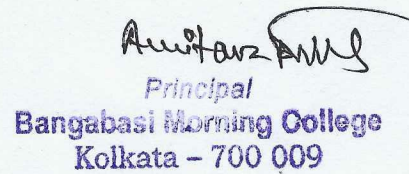 Amitava
Principal
Bangabasi Morning College
Kolkata – 700 009